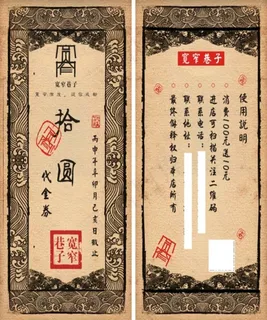 宽窄巷子
拾圆
代金券
丙申年辛卯月乙亥日截止
宽窄
巷子
宽窄巷子
使用说明
消费100元送10元
进店可扫描关注二维码
联系电话:
联系地址:
最终解释权归本店所有